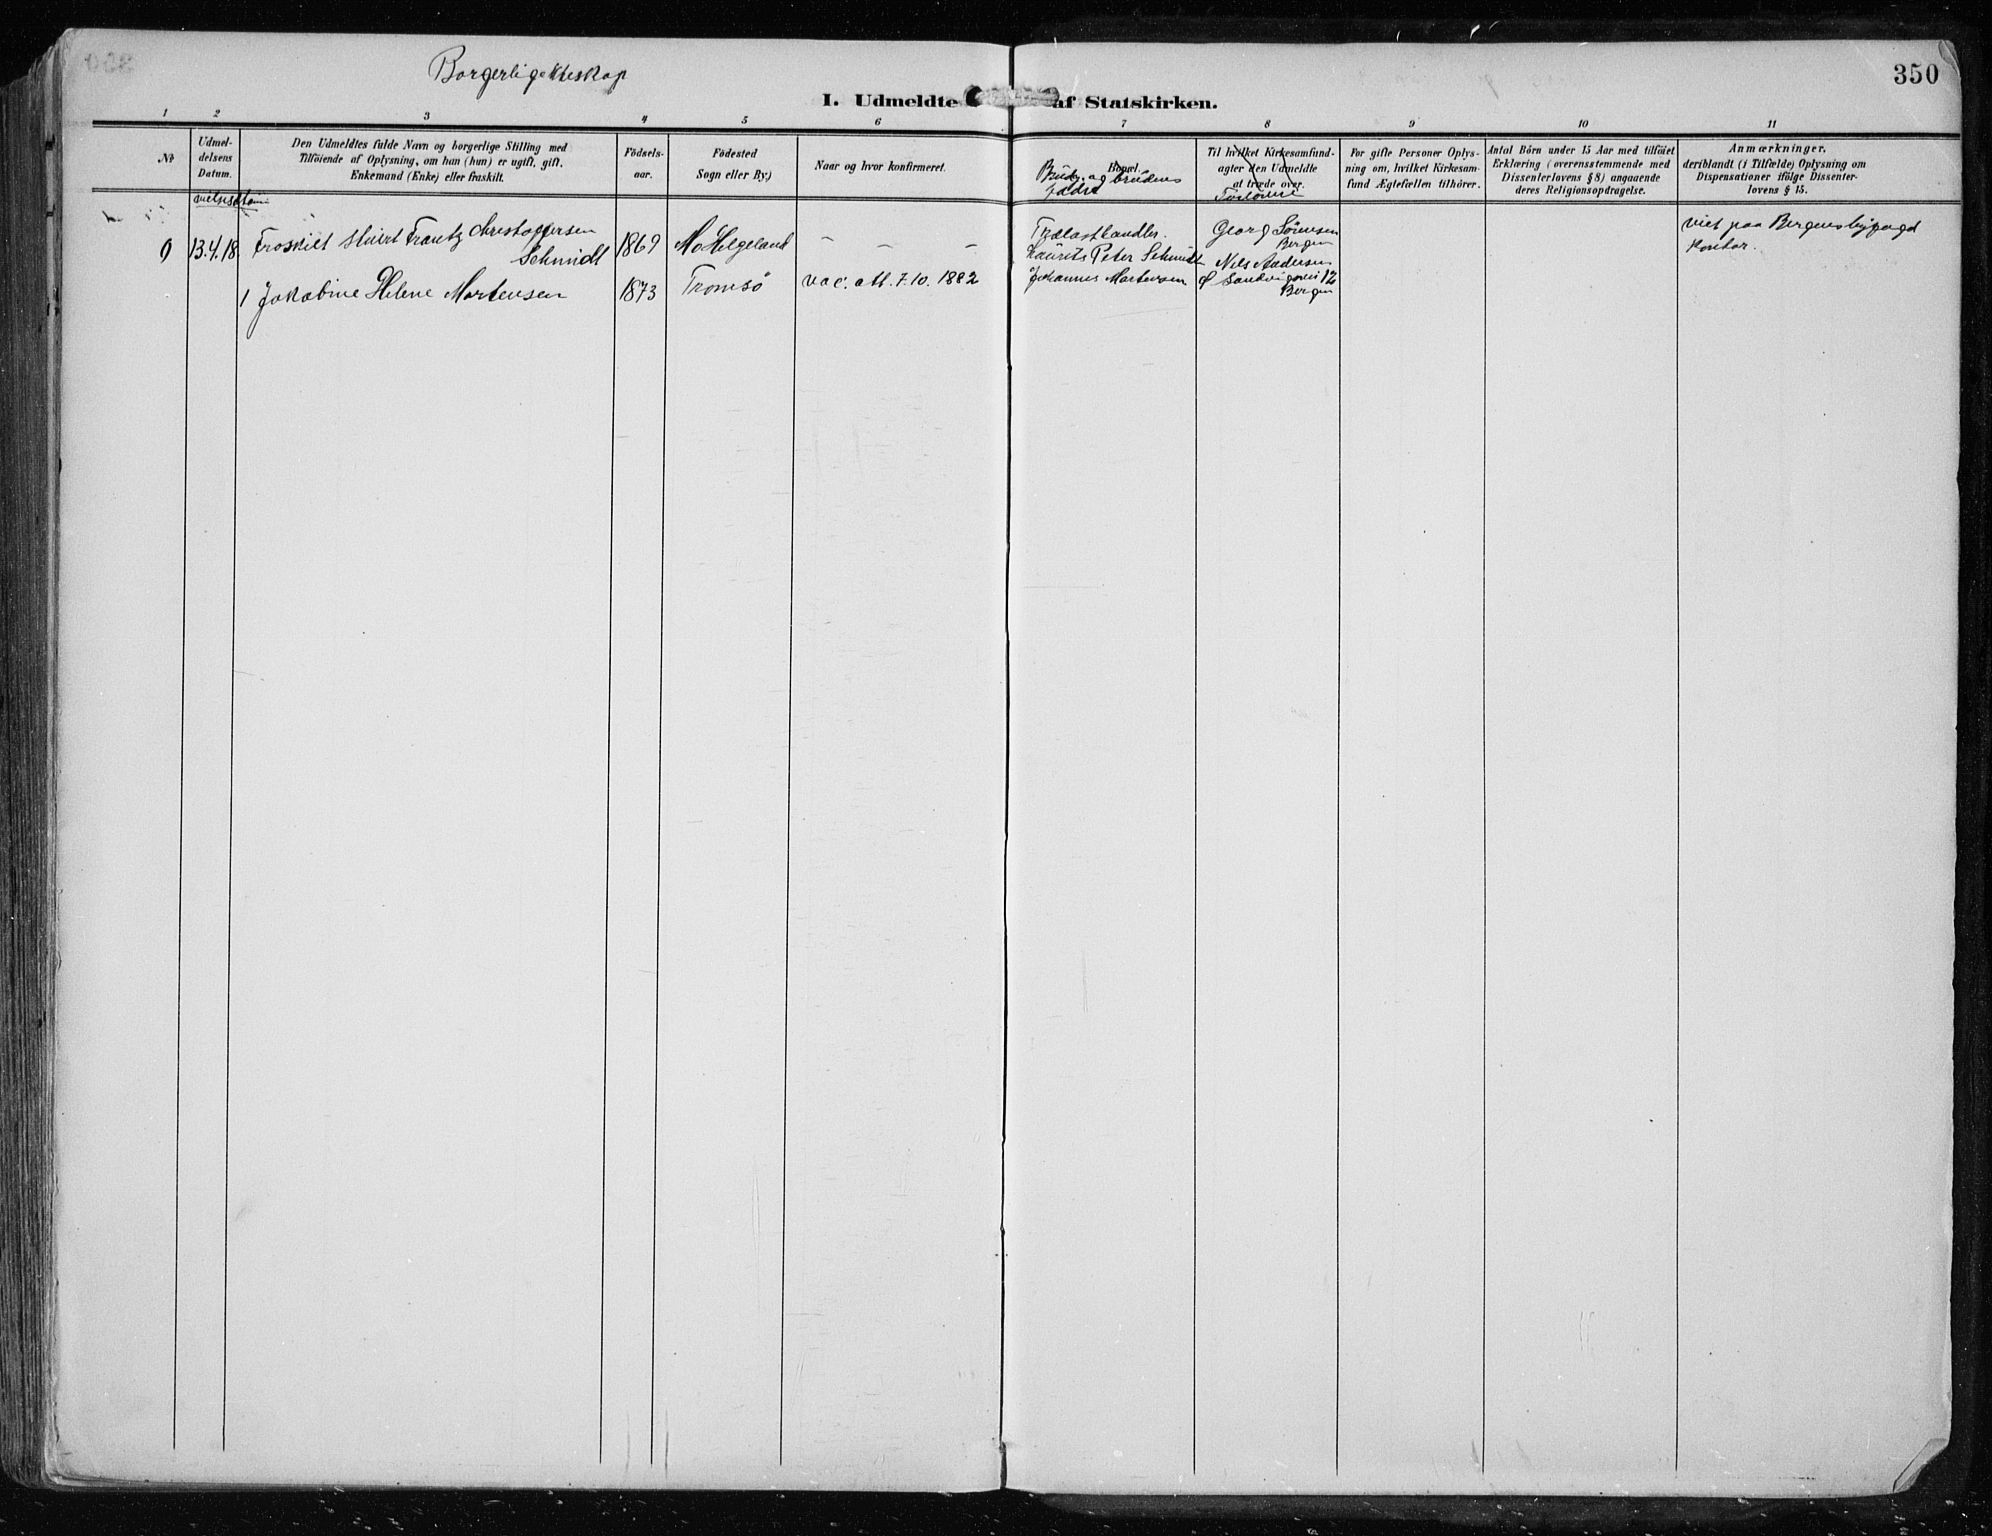 Borgerlig ekteskap
350
I. Udmeldte af Statskirken.
1 2 3 4 5 6 7 8 9 10 11
№
Udmel-
delsens
Datum.
Den Udmeldtes fulde Navn og borgerlige Stilling med
Tilföiende af Oplysning, om han (hun) er ugift, gift,
Enkemand (Enke) eller fraskilt.
Födsels-
aar.
Födested
Sogn eller By.)
Naar og hvor konfirmeret.
Bopæl.
Brudg. og brudens
fædre
Til hvilket Kirkesamfund-
agter den Udmeldte
at træde over.
Forlovere
For gifte Personer Oplys-
ning om, hvilket Kirkesam-
fund Ægtefællen tilhörer.
Antal Börn under 15 Aar med tilföiet
Erklæring (overensstemmende med
Dissenterlovens § 8) angaaende
deres Religionsopdragelse.
Anmærkninger,
deriblandt (i Tilfælde) Oplysning om
Dispensationer ifölge Dissenter-
lovens § 15.
0 13.4.18. Fraskilt Frantz Christophersen
Schmidt
1869
Mo Helgeland
— — —
Trælasthandler.
Laurits Peter Schmidt
Georg Sørensen
Bergen
viet paa Bergens byfogd
kontor.
1 Jakobine Helene Mortensen
1873
Tromsö
vac. att. 7.10. 1882
Johannes Mortensen
Nils Andersen
Sandvigsvei 12
Bergen